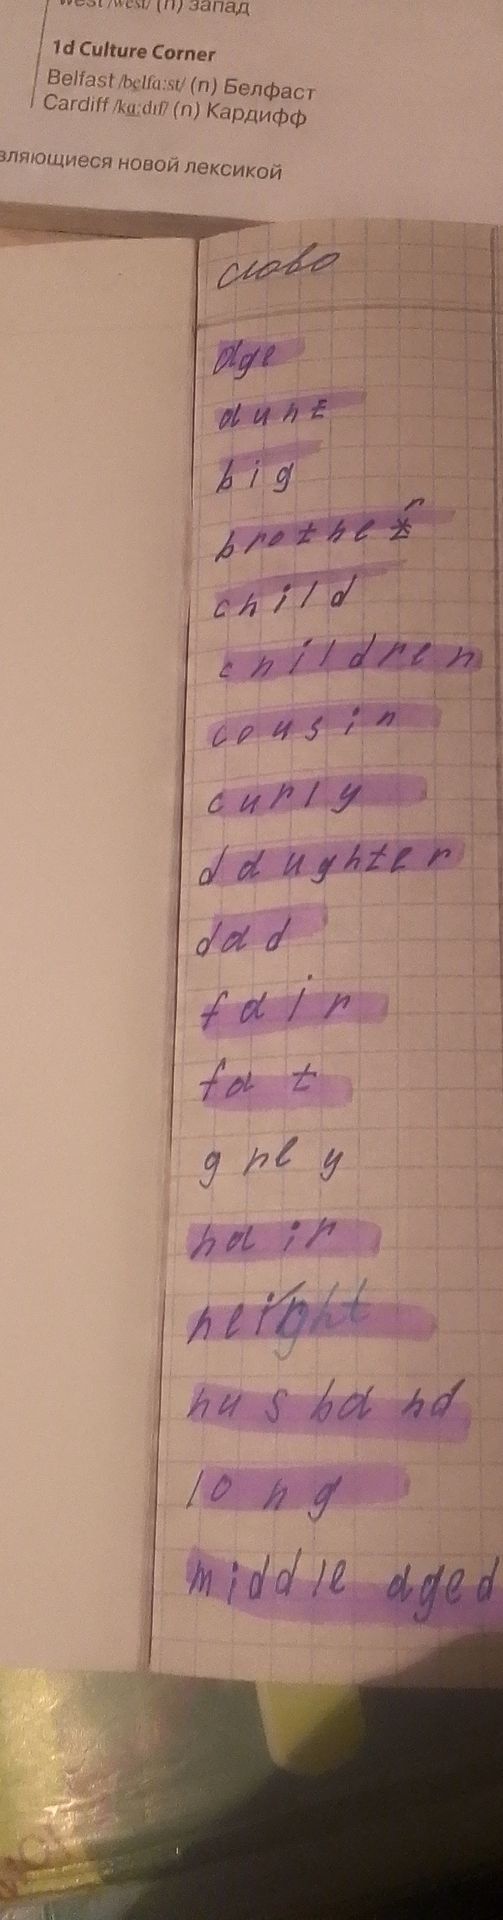 west /west/ (n) запад
1d Culture Corner
Belfast /belfɑːst/ (n) Белфаст
Cardiff /kɑːdɪf/ (n) Кардифф
вляющиеся новой лексикой
слово
age
aunt
big
brother
child
children
cousin
curly
daughter
dad
fair
fat
grey
hair
height
husband
long
middle aged